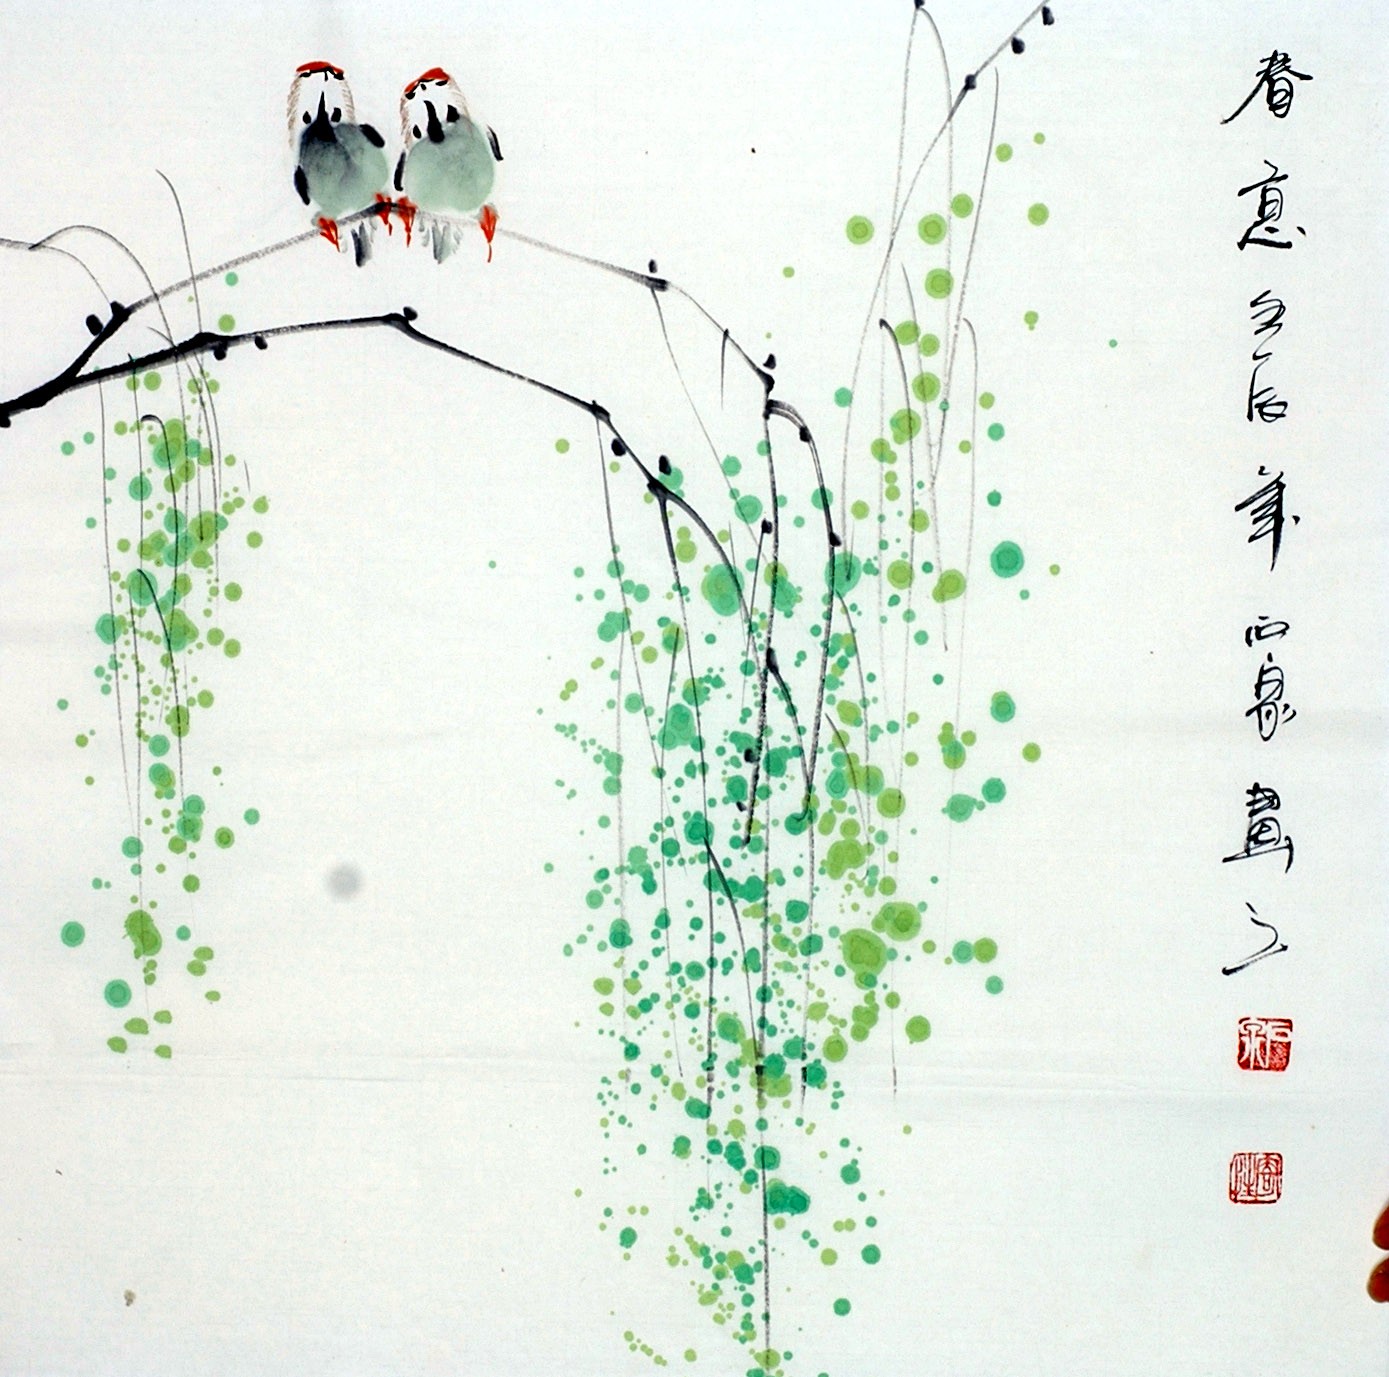 春意壬辰年西泉畫之